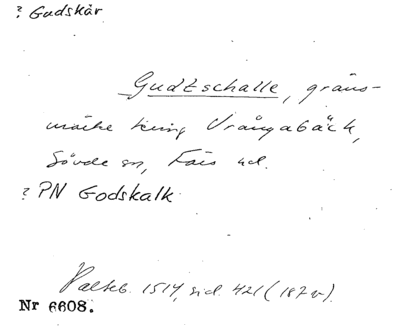 ? Gudskår
Gudtschalle, gräns-
märke kring Vrångabäck,
Sövde sn, Färs hd.
? PN Godskalk
Palteb. 1514, sid. 421 (187 v).
Nr 6608.